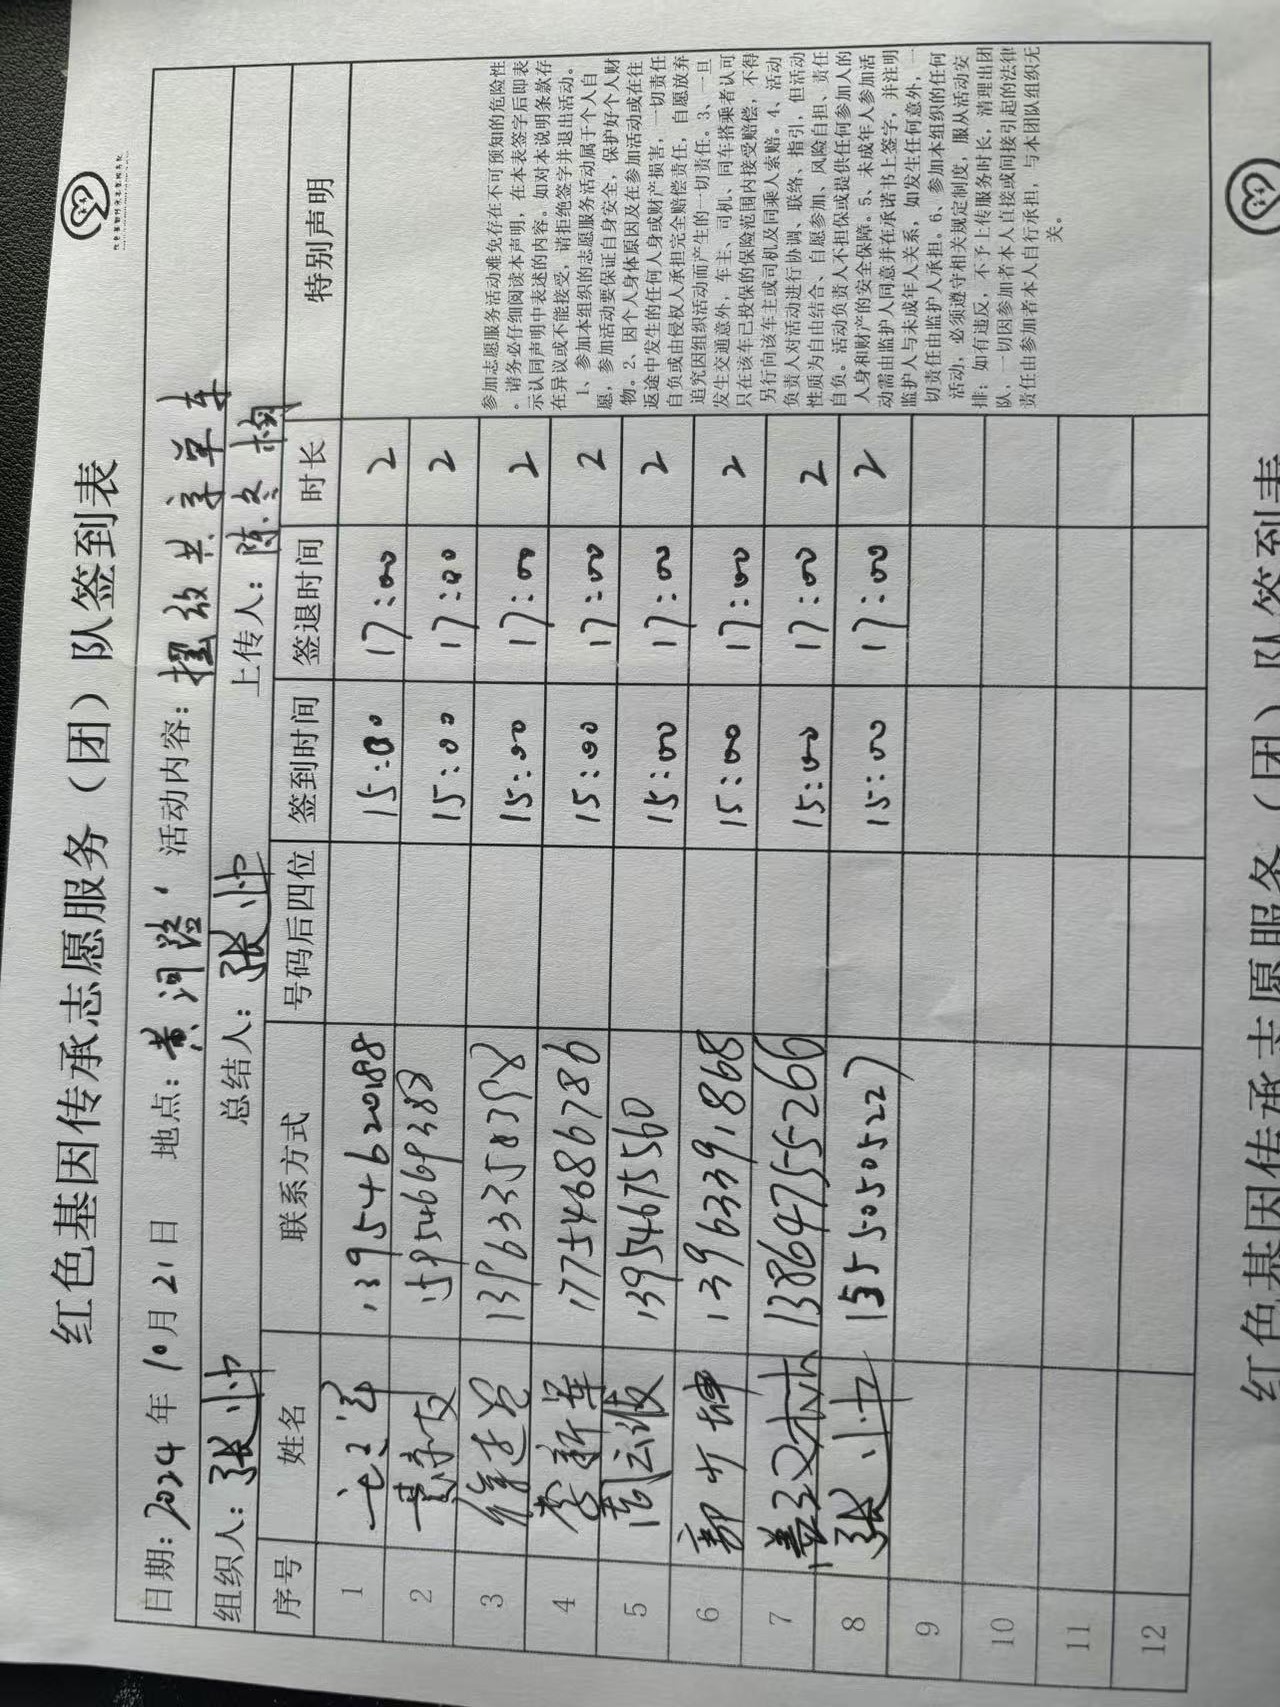 红色基因传承志愿服务（团）队签到表
日期：2024 年 10 月 21 日 地点：黄河路 活动内容：摆放共享单车
组织人：张帅 总结人：张帅 上传人：陈冬梅
序号 姓名 联系方式 号码后四位 签到时间 签退时间 时长 特别声明
1 13954620188 15:00 17:00 2
2 15:00 17:00 2
3 15:00 17:00 2
4 李新军 17754686786 15:00 17:00 2
5 周云波 13954675560 15:00 17:00 2
6 13963391868 15:00 17:00 2
7 13864755266 15:00 17:00 2
8 张帅 15550505227 15:00 17:00 2
9
10
11
12
参加志愿服务活动难免存在不可预知的危险性
。请务必仔细阅读本声明，在本表签字后即表
示认同声明中表述的内容。如对本说明条款存
在异议或不能接受，请拒绝签字并退出活动。
1、参加本组织的志愿服务活动属于个人自
愿，参加活动要保证自身安全，保护好个人财
物。2、因个人身体原因及在参加活动或在往
返途中发生的任何人身或财产损害，一切责任
自负或由侵权人承担完全赔偿责任，自愿放弃
追究因组织活动而产生的一切责任。3、一旦
发生交通意外，车主、司机、同车搭乘者认可
只在该车已投保的保险范围内接受赔偿，不得
另行向该车主或司机及同乘人索赔。4、活动
负责人对活动进行协调、联络、指引，但活动
性质为自由结合、自愿参加、风险自担、责任
自负。活动负责人不担保或提供任何参加人的
人身和财产的安全保障。5、未成年人参加活
动需由监护人同意并在承诺书上签字，并注明
监护人与未成年人关系，如发生任何意外，一
切责任由监护人承担。6、参加本组织的任何
活动，必须遵守相关规定制度，服从活动安
排；如有违反，不予上传服务时长，清理出团
队，一切因参加者本人直接或间接引起的法律
责任由参加者本人自行承担，与本团队组织无
关。
红色基因传承志愿服务（团）队签到表